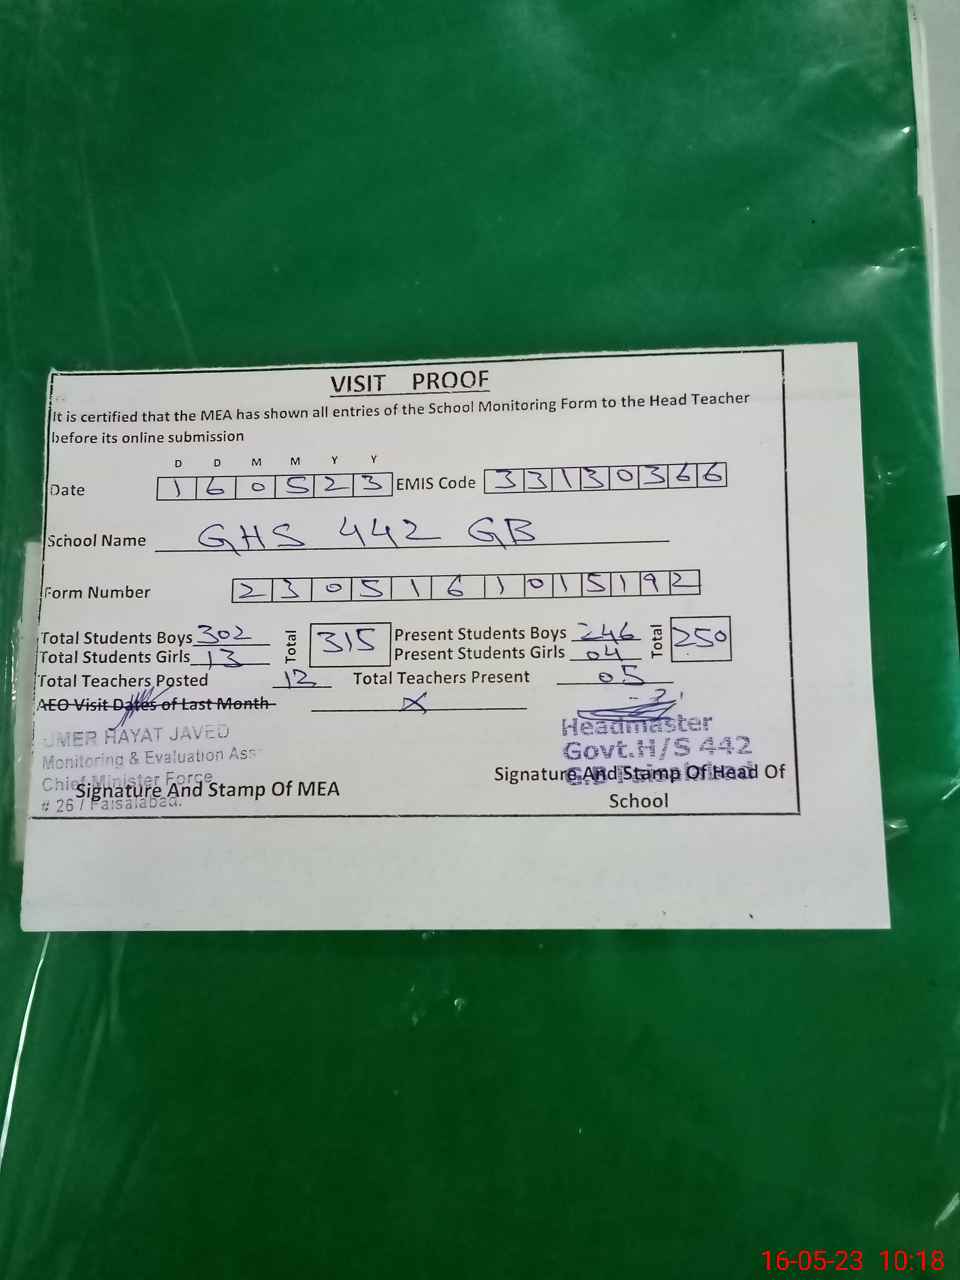 VISIT PROOF
It is certified that the MEA has shown all entries of the School Monitoring Form to the Head Teacher
before its online submission
D D M M Y Y
Date 1 6 0 5 2 3 EMIS Code 3 3 1 3 0 3 6 6
School Name GHS 442 GB
Form Number 2 3 0 5 1 6 1 0 1 5 1 9 2
Total Students Boys 302 Total 315 Present Students Boys 246 Total 250
Total Students Girls 13 Present Students Girls 04
Total Teachers Posted 12 Total Teachers Present 05
AEO Visit Dates of Last Month X
UMER HAYAT JAVED
Monitoring & Evaluation Ass
Chief Minister Force
# 26 / Faisalabad.
Signature And Stamp Of MEA
Headmaster
Govt.H/S 442
G.B Faisalabad
Signature And Stamp Of Head Of
School
16-05-23 10:18